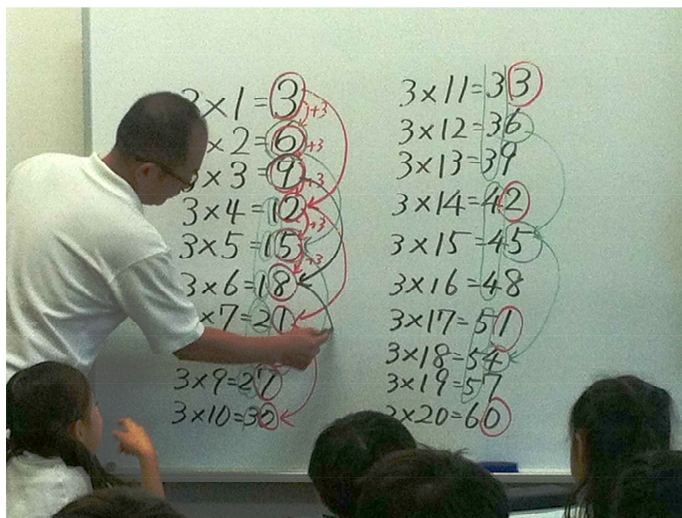 3×1=3
+3
×2=6
+3
×3=9
+3
3×4=12
+3
3×5=15
+3
3×6=18
×7=21
3×9=27
3×10=30
3×11=33
3×12=36
3×13=39
3×14=42
3×15=45
3×16=48
3×17=51
3×18=54
3×19=57
3×20=60